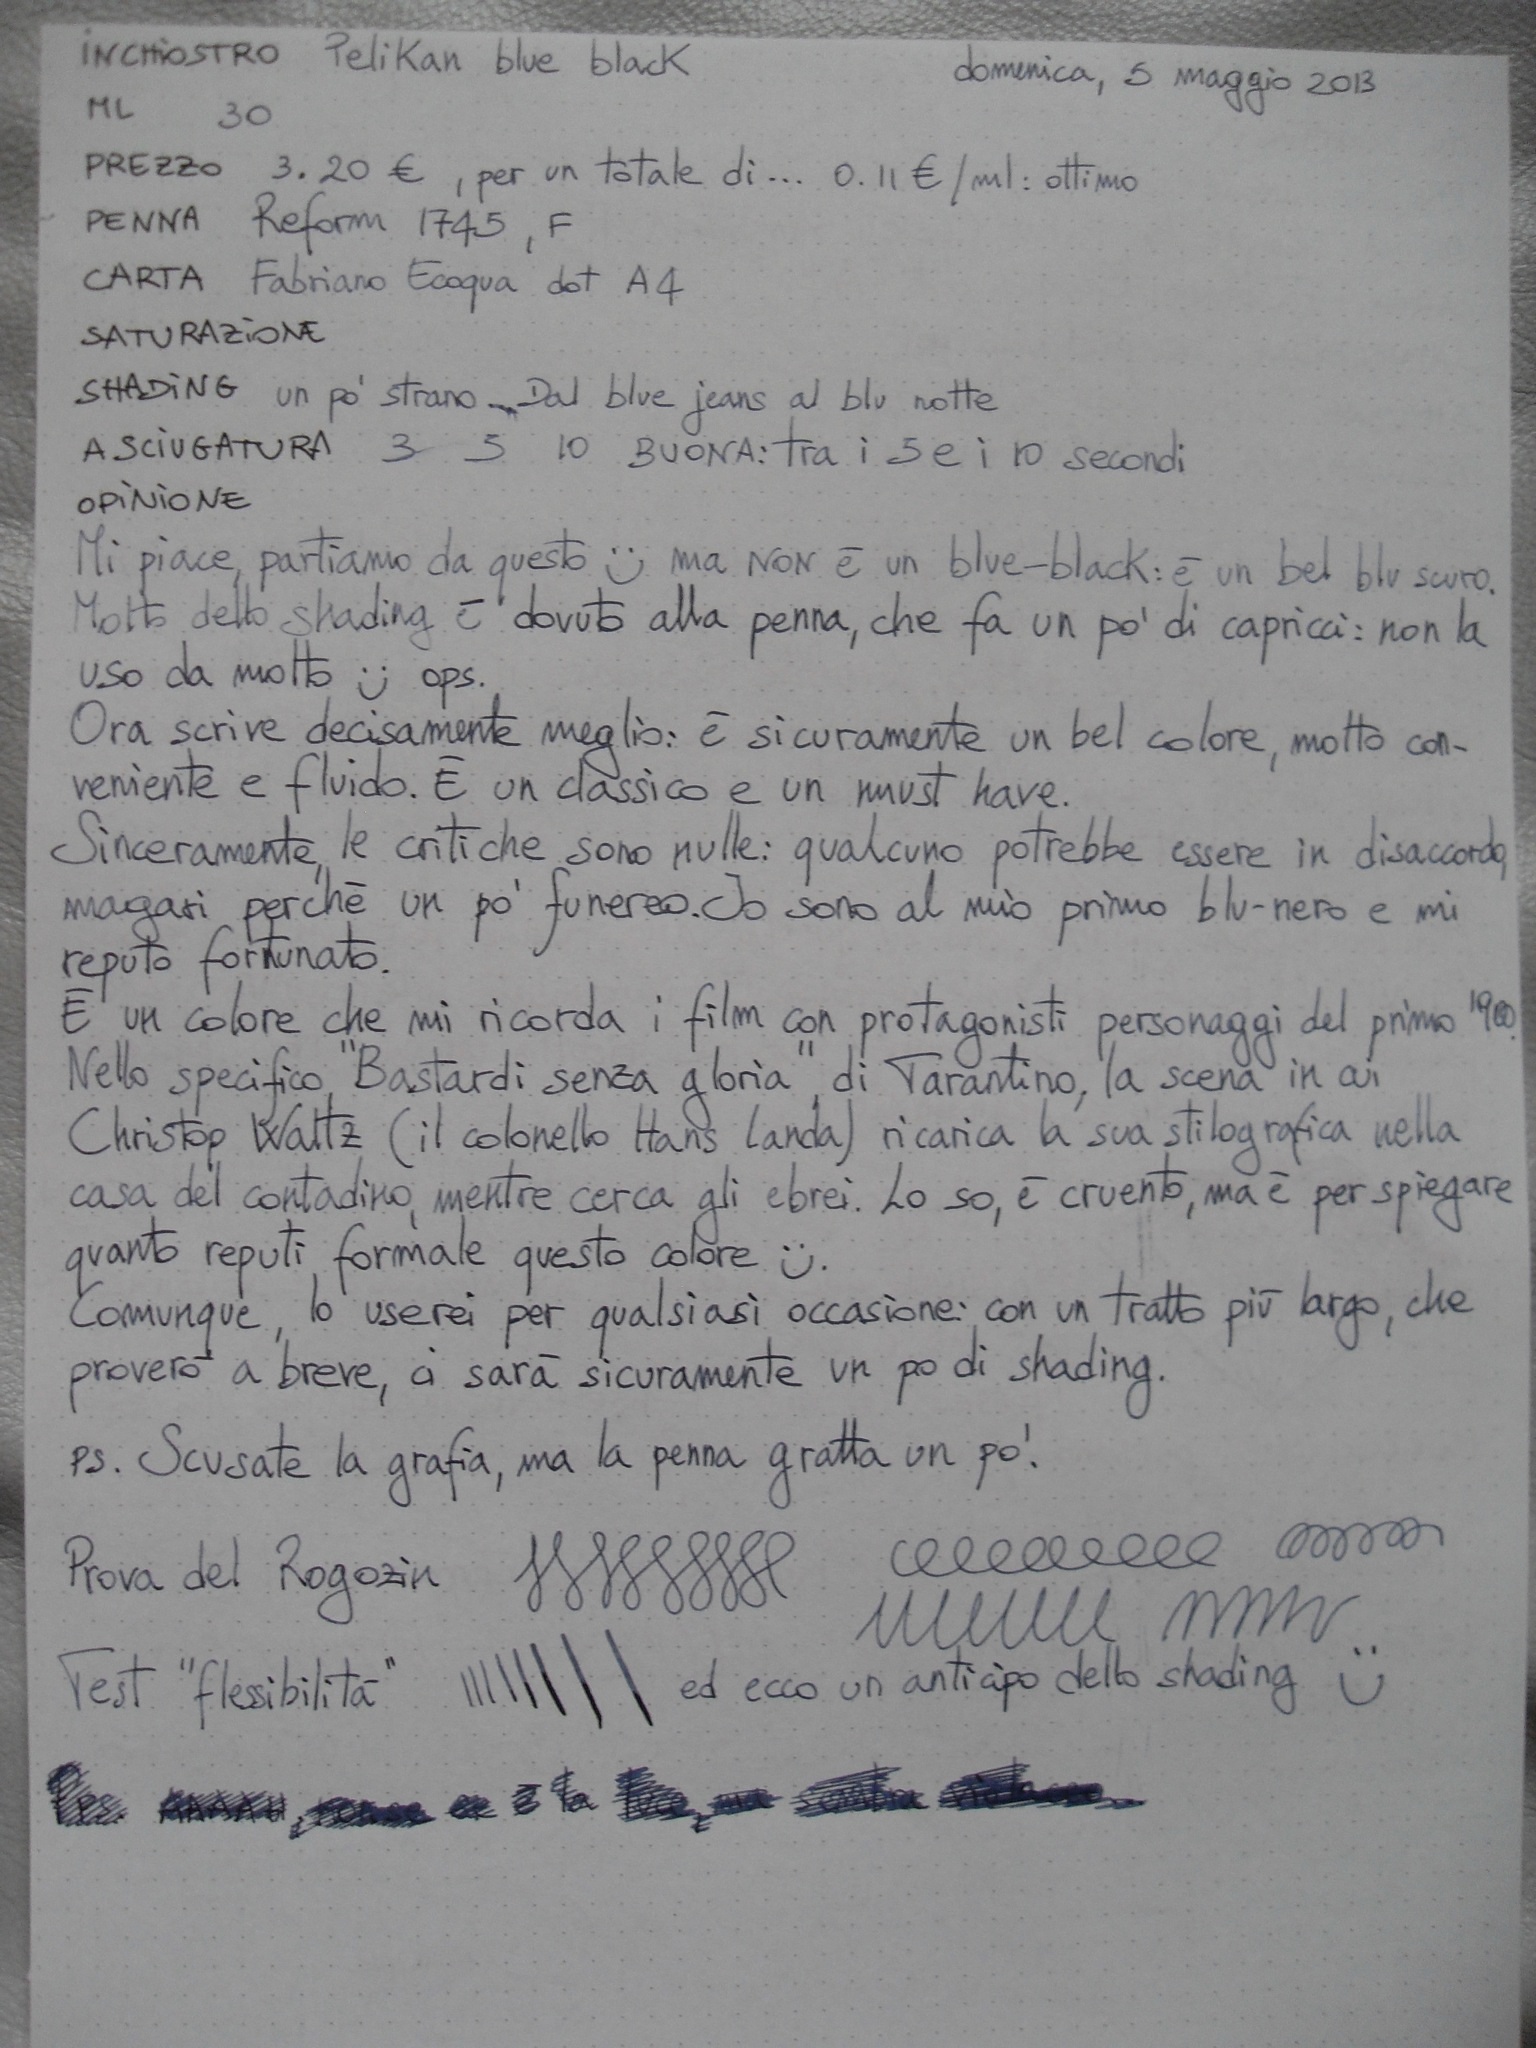 INCHIOSTRO Pelikan blue black domenica, 5 maggio 2013
ML 30
PREZZO 3.20 € , per un totale di... 0.11 €/ml: ottimo
PENNA Reform 1745, F
CARTA Fabriano Ecoqua dot A4
SATURAZIONE
SHADING un po' strano... Dal blue jeans al blu notte
ASCIUGATURA 3 5 10 BUONA: tra i 5 e i 10 secondi
OPINIONE
Mi piace, partiamo da questo :) ma NON è un blue-black: è un bel blu scuro.
Molto dello shading è dovuto alla penna, che fa un po' di capricci: non la
uso da molto :) ops.
Ora scrive decisamente meglio: è sicuramente un bel colore, molto con-
veniente e fluido. È un classico e un must have.
Sinceramente, le critiche sono nulle: qualcuno potrebbe essere in disaccordo,
magari perchè un po' funereo. Io sono al mio primo blu-nero e mi
reputo fortunato.
È un colore che mi ricorda i film con protagonisti personaggi del primo 1900.
Nello specifico, "Bastardi senza gloria", di Tarantino, la scena in cui
Christop Waltz (il colonello Hans Landa) ricarica la sua stilografica nella
casa del contadino, mentre cerca gli ebrei. Lo so, è cruento, ma è per spiegare
quanto reputi formale questo colore :).
Comunque, lo userei per qualsiasi occasione: con un tratto più largo, che
proverò a breve, ci sarà sicuramente un po di shading.
PS. Scusate la grafia, ma la penna gratta un po'.
Prova del Rogozin
Test "flessibilità" ed ecco un anticipo dello shading :)
è la